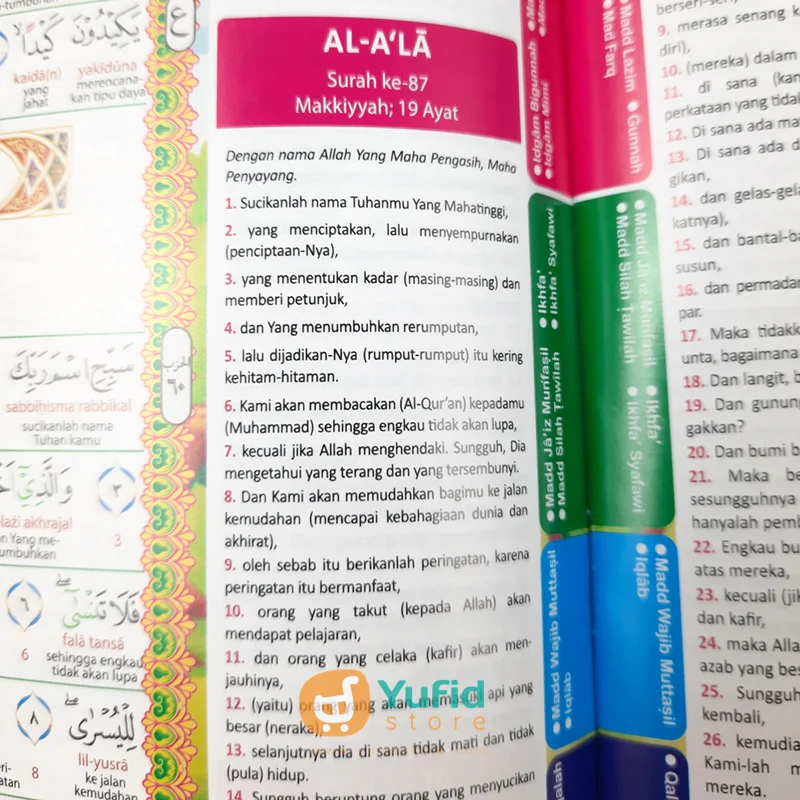 يَكِيْدُوْنَ كَيْدًا
kaidā(n) yakīdūna
yang jahat
merencana-
kan tipu daya
ع
سَبِّحِ اسْمَ رَبِّكَ
sabbiḥisma rabbikal
sucikanlah nama
Tuhan kamu
الحزب
٦٠
وَالَّذِيْٓ
٣
-lażī akhrajal
3
فَلَا تَنْسٰٓى
٦
falā tansā
6
sehingga engkau
tidak akan lupa
لِلْيُسْرٰى
٨
lil-yusrā
8
ke jalan
kemudahan
AL-A'LĀ
Surah ke-87
Makkiyyah; 19 Ayat
Dengan nama Allah Yang Maha Pengasih, Maha
Penyayang.
1. Sucikanlah nama Tuhanmu Yang Mahatinggi,
2. yang menciptakan, lalu menyempurnakan
(penciptaan-Nya),
3. yang menentukan kadar (masing-masing) dan
memberi petunjuk,
4. dan Yang menumbuhkan rerumputan,
5. lalu dijadikan-Nya (rumput-rumput) itu kering
kehitam-hitaman.
6. Kami akan membacakan (Al-Qur'an) kepadamu
(Muhammad) sehingga engkau tidak akan lupa,
7. kecuali jika Allah menghendaki. Sungguh, Dia
mengetahui yang terang dan yang tersembunyi.
8. Dan Kami akan memudahkan bagimu ke jalan
kemudahan (mencapai kebahagiaan dunia dan
akhirat),
9. oleh sebab itu berikanlah peringatan, karena
peringatan itu bermanfaat,
10. orang yang takut (kepada Allah) akan
mendapat pelajaran,
11. dan orang yang celaka (kafir) akan men-
jauhinya,
12. (yaitu) orang yang akan memasuki api yang
besar (neraka),
13. selanjutnya dia di sana tidak mati dan tidak
(pula) hidup.
14. Sungguh beruntung orang yang menyucikan
Yufid
store
● Idgām Bigunnah
● Idgām Mimi
● Ikhfa'
● Ikhfa' Syafawi
● Madd Jā'iz Munfaṣil
● Madd Silah Ṭawilah
● Madd Wajib Muttaṣil
● Iqlāb
Madd Lazim ● Gunnah
● Mad Farq
● Madd Jā'iz Munfaṣil ● Ikhfa'
● Madd Silah Ṭawilah ● Ikhfa' Syafawi
● Madd Wajib Muttaṣil
● Iqlāb
9. merasa senang
diri),
10. (mereka) dalam
11. di sana
perkataan yang
12. Di sana ada
13. Di sana ada
gikan,
14. dan
katnya),
15. dan
susun,
16. dan
par.
17. Maka
unta, bagaimana
18. Dan langit,
19. Dan
gakkan?
20. Dan bumi
21. Maka
sesungguhnya
hanyalah
22. Engkau
atas mereka,
23. kecuali
dan kafir,
24. maka
azab yang
25. Sungguh
kembali,
26.
Kami-lah
mereka.